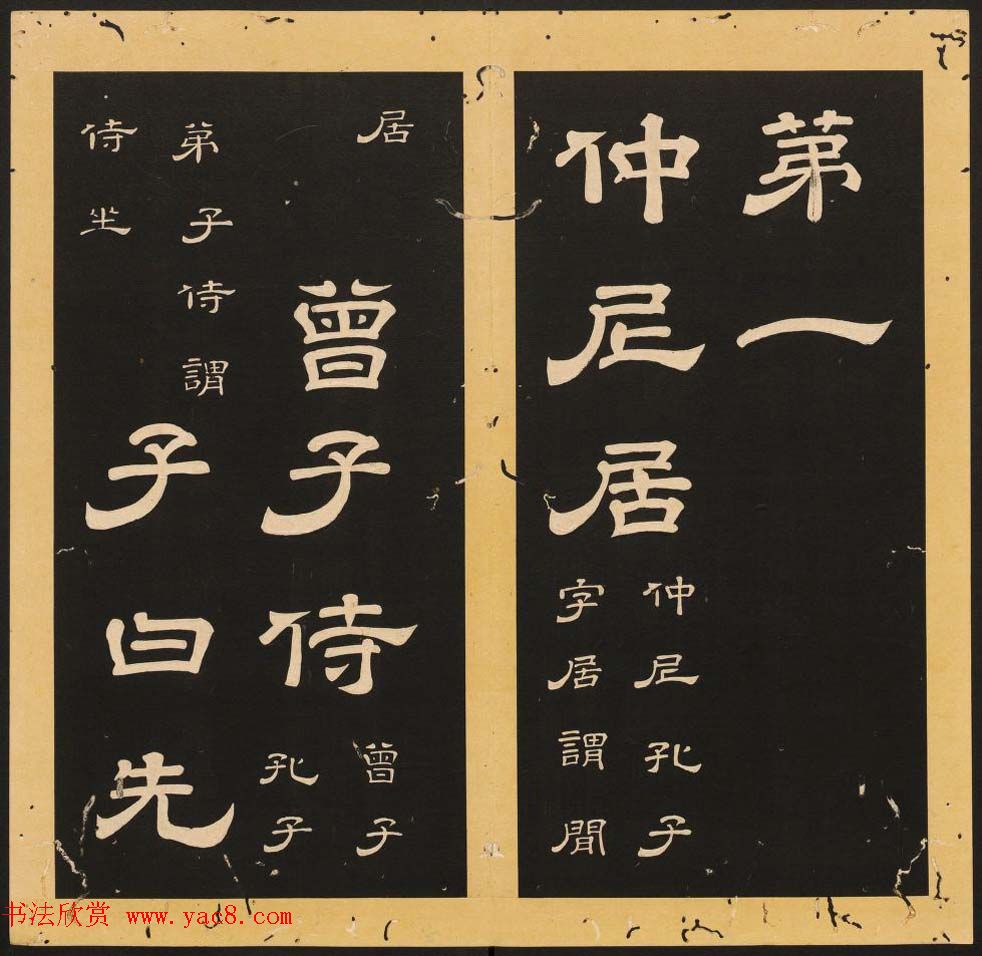 苐一
仲尼居
仲尼孔子
字居謂閒
居
曾子侍
曾子
孔子
弟子侍謂
侍坐
子曰先
书法欣赏 www.yac8.com